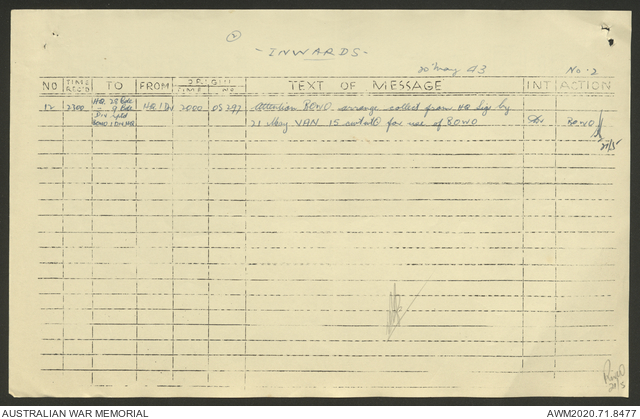 ②
- INWARDS -
20 May 43 No. 2
NO TIME REC'D TO FROM ORIG'L TIME NO TEXT OF MESSAGE INT ACTION
12 2300 HQ 28 Bde HQ 1 Div 2000 OS 297 Attention BOWO arrange collect from HQ Sigs by BOWO
" 9 Bde 21 May VAN 15 cwt for use of BOWO
21/5
21/5
AUSTRALIAN WAR MEMORIAL AWM2020.71.8477